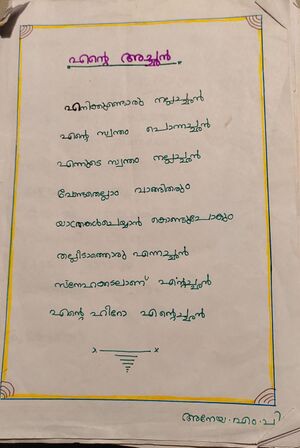 എന്റെ അച്ഛൻ
എനിക്കുണ്ടൊരു നല്ലച്ഛൻ
എന്റെ സ്വന്തം പൊന്നച്ഛൻ
എന്നുടെ സ്വന്തം നല്ലച്ഛൻ
വേണ്ടതെല്ലാം വാങ്ങിതരും
യാത്രകൾചെയ്യാൻ കൊണ്ടുപോകും
തല്ലീടാത്തൊരു എന്നച്ഛൻ
സ്നേഹക്കടലാണ് എന്റച്ഛൻ
എന്റെ ഹീറോ എന്റെച്ഛൻ
അനേയ. എം. പി